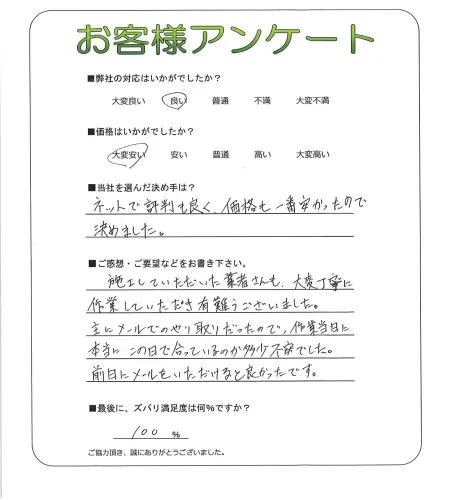 お客様アンケート
■弊社の対応はいかがでしたか？
大変良い 良い 普通 不満 大変不満
■価格はいかがでしたか？
大変安い 安い 普通 高い 大変高い
■当社を選んだ決め手は？
ネットで評判も良く、価格も一番安かったので
決めました。
■ご感想・ご要望などをお書き下さい。
施工していただいた業者さんも、大変丁寧に
作業していただき有難うございました。
主にメールでのやり取りだったので、作業当日に
本当にこの日で合っているのか多少不安でした。
前日にメールをいただけると良かったです。
■最後に、ズバリ満足度は何%ですか？
100 %
ご協力頂き、誠にありがとうございました。